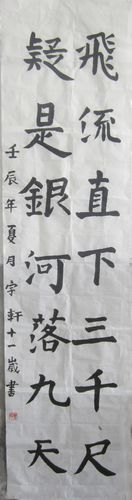 飛流直下三千尺
疑是銀河落九天
壬辰年夏月宇軒十一歲書